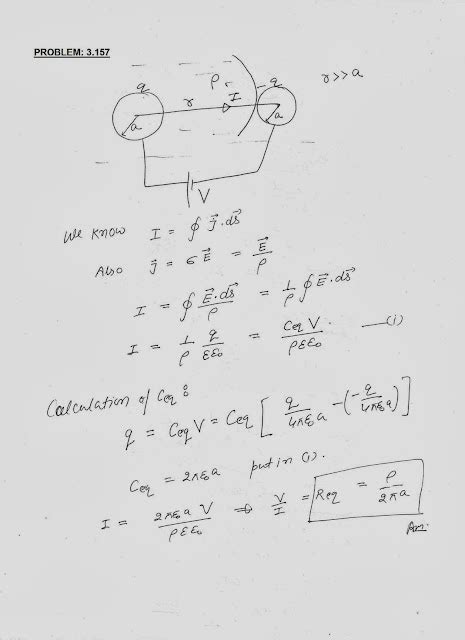 PROBLEM: 3.157
q
ρ
- q
r >> a
r
I
a
a
V
We know I = ∮ J⃗ . ds⃗
Also J⃗ = σ E⃗ = E⃗/ρ
I = ∮ E⃗.ds⃗/ρ = 1/ρ ∮ E⃗.ds⃗
I = 1/ρ q/εε₀ = Ceq V/ρεε₀ —(i)
Calculation of Ceq :
q = Ceq V = Ceq [ q/4πε₀a - (- q/4πε₀a) ]
Ceq = 2πε₀a put in (i).
I = 2πε₀a V/ρεε₀ ⇒ V/I = Req = ρ/2πa
Ans.